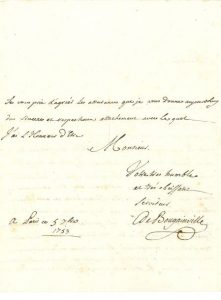 Je vous prie d'agréer les assurances que je vous donne
du sincere et respectueux attachement avec lequel
J'ai L'Honneur d'être
Monsieur
Votre très humble
et très obeissant
Serviteur
De Bougainville
A Paris ce 5 7bre